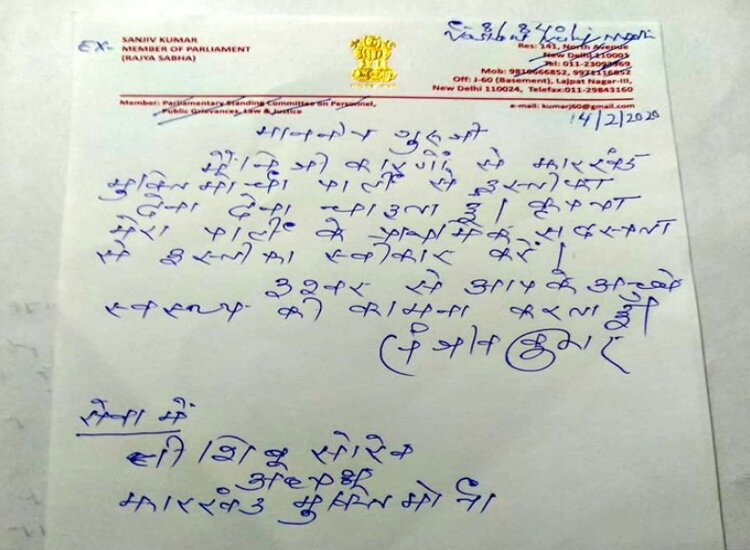 EX- SANJIV KUMAR
MEMBER OF PARLIAMENT
(RAJYA SABHA)
Res: 141, North Avenue
New Delhi 110001
Tel: 011-23093969
Mob: 9810666852, 9971116852
Off: J-60 (Basement), Lajpat Nagar-III,
New Delhi 110024, Telefax:011-29843160
Member: Parliamentary Standing Committee on Personnel,
Public Grievances, Law & Justice
e-mail: kumarj60@gmail.com
14/2/2020
माननीय गुरुजी
मैं निजी कारणों से झारखंड
मुक्ति मोर्चा पार्टी से इस्तीफा
देना चाहता हूँ। कृपया
मेरा पार्टी के प्राथमिक सदस्यता
से इस्तीफा स्वीकार करें।
ईश्वर से आपके अच्छे
स्वास्थ्य की कामना करता हूँ।
संजीव कुमार
सेवा में
श्री शिबू सोरेन
अध्यक्ष
झारखंड मुक्ति मोर्चा